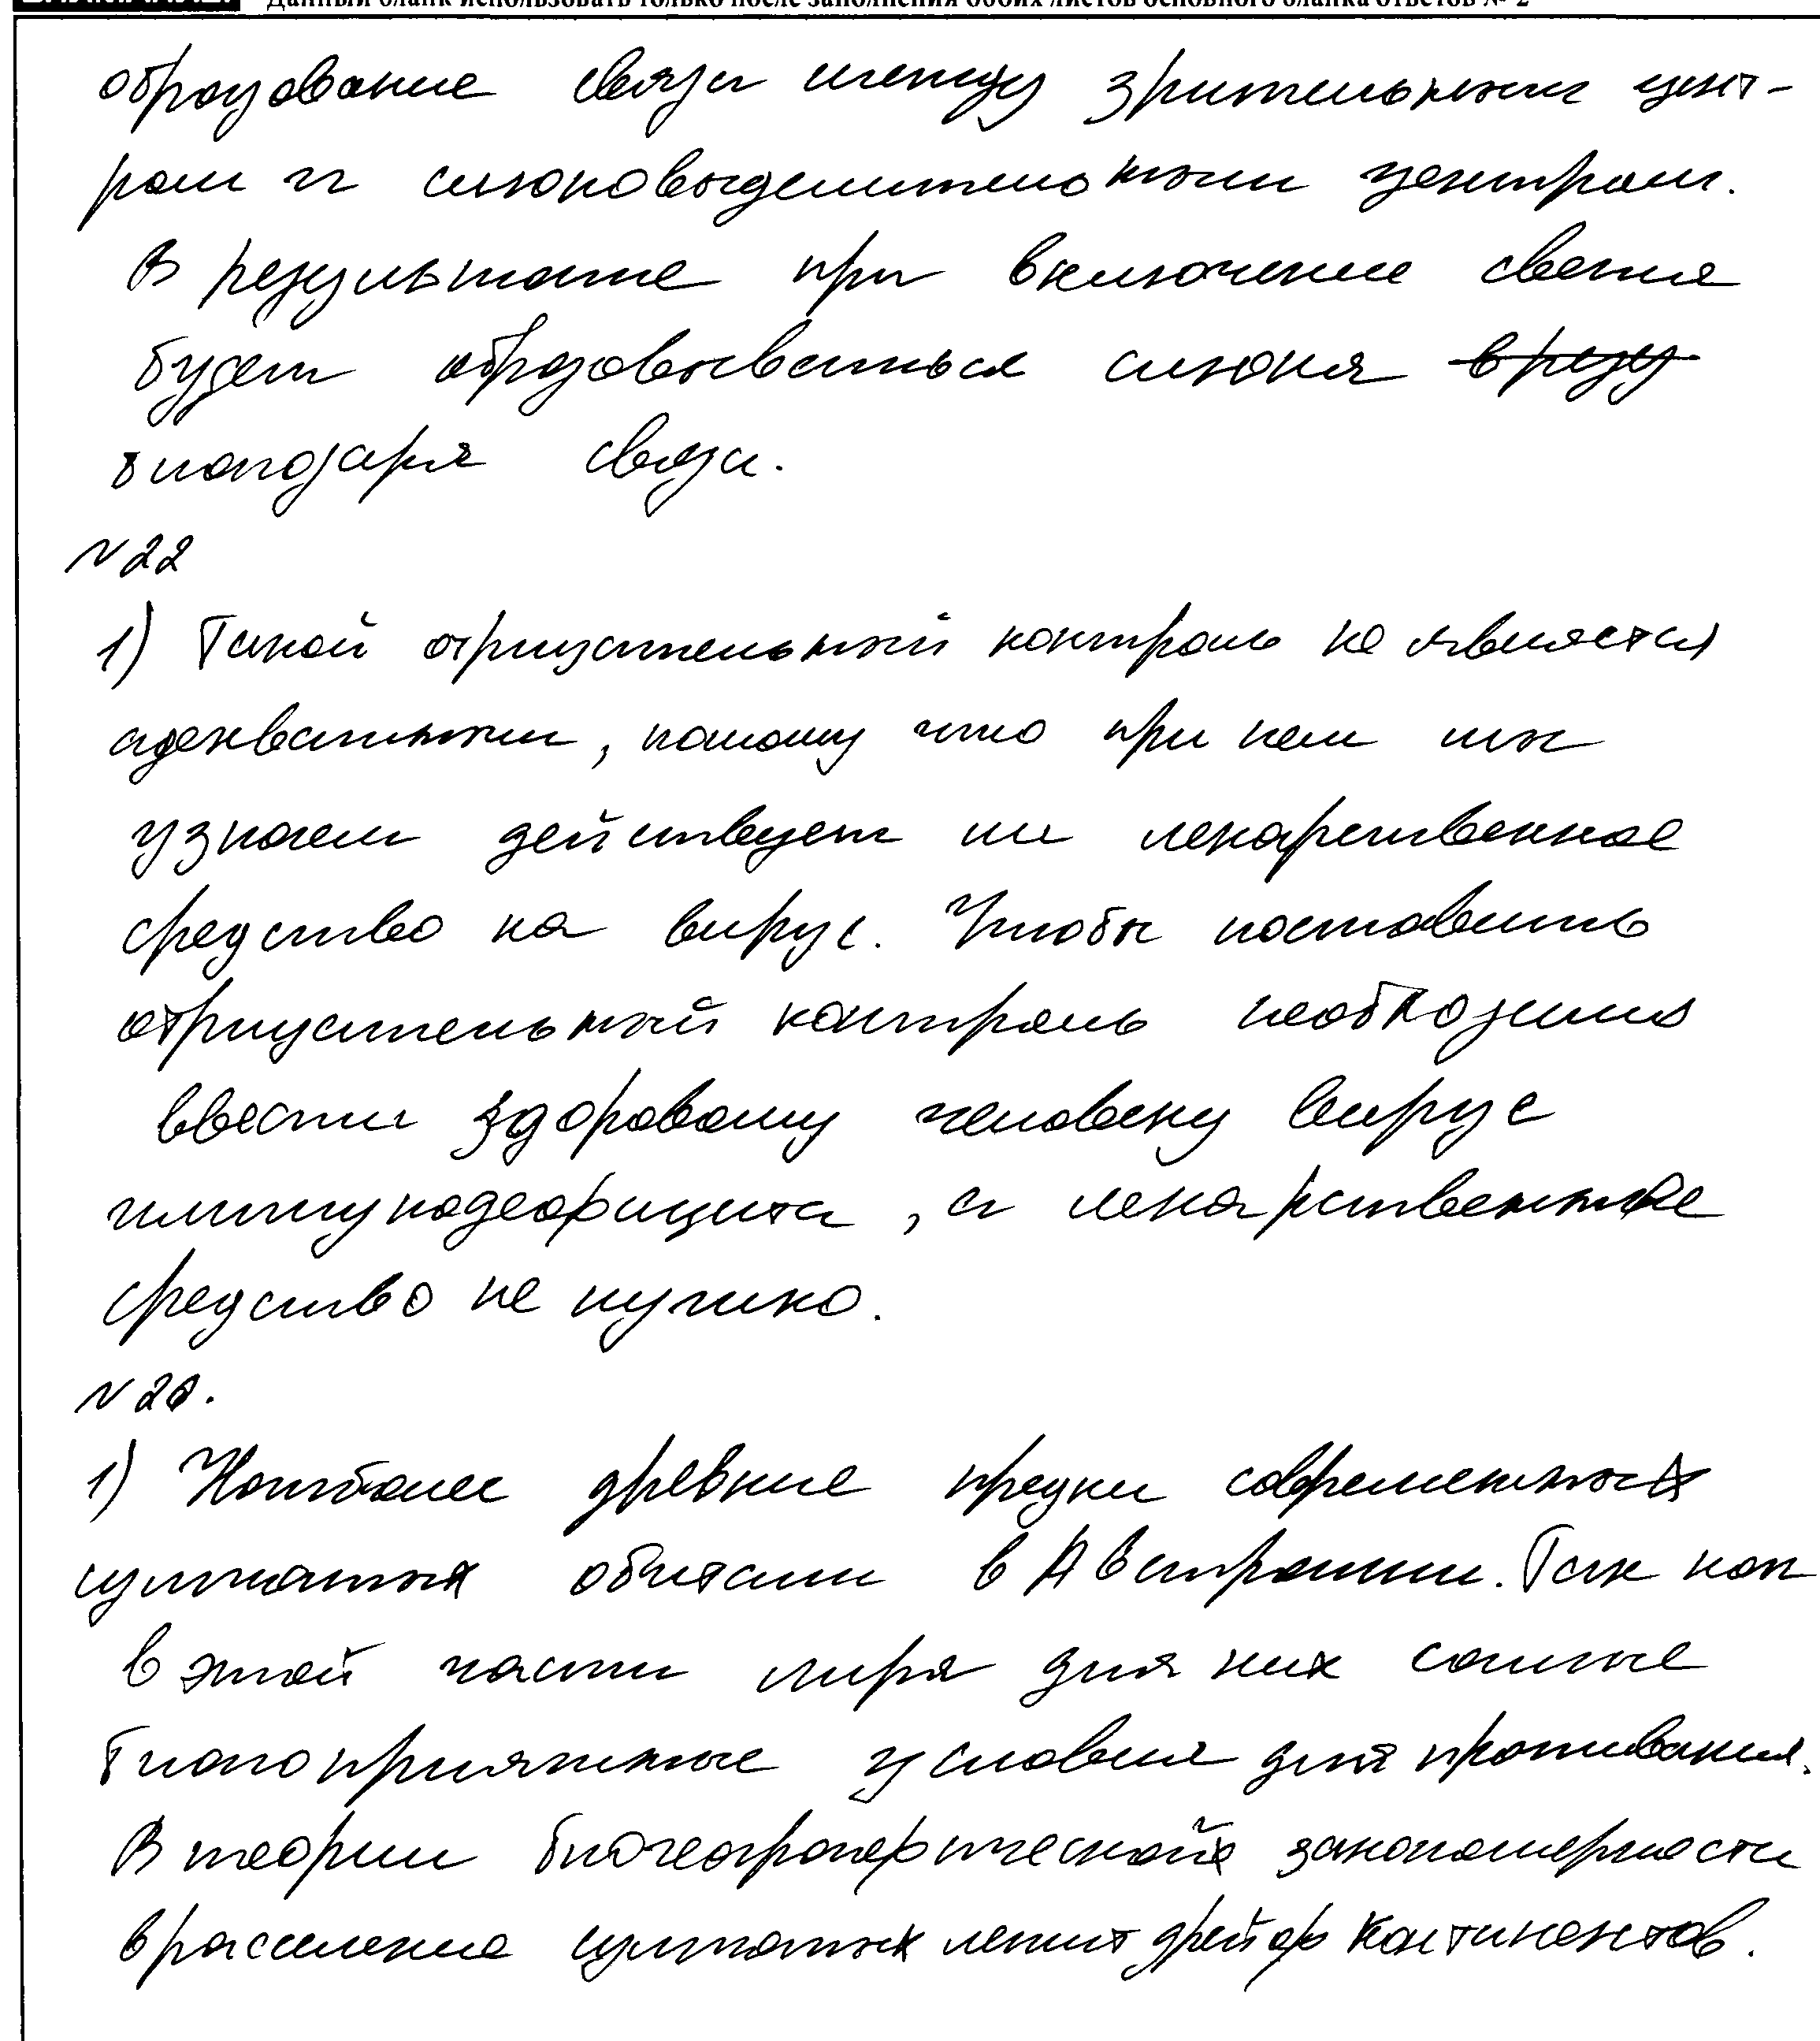 Данный бланк использовать только после заполнения обоих листов основного бланка ответов № 2
образование связи между зрительным цент-
ром и слюновыделительным центром.
В результате при включение света
будет образовываться слюна в резу
благодаря связи.
№22
1) Такой отрицательный контроль не является
адекватным, потому что при нем мы
узнаем действует ли лекарственное
средство на вирус. Чтобы поставить
отрицательный контроль необходимо
ввести здоровому человеку вирус
иммунодефицита, а лекарственное
средство не нужно.
№26.
1) Наиболее древние предки современных
сумчатых обитали в Австралии. Так как
в этой части мира для них самые
благоприятные условия для проживания.
В теории биогеографической закономерности
в расселение сумчатых лежит дрейф континентов.